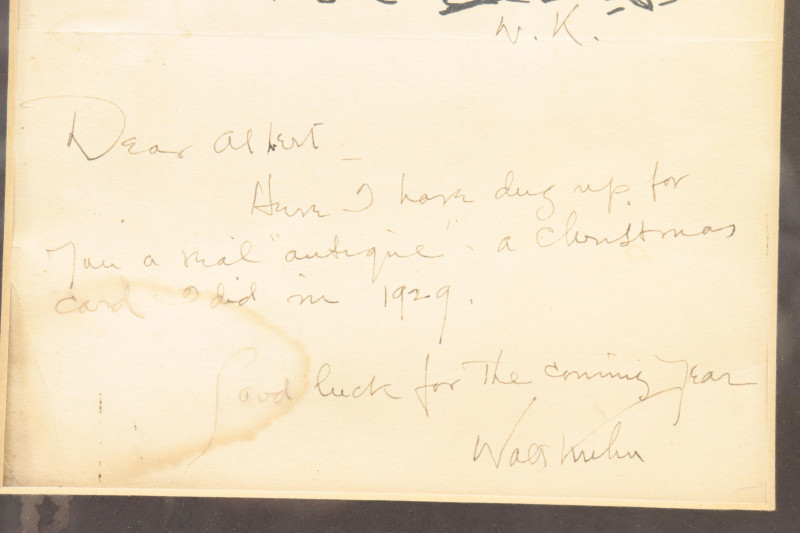 W. K.
Dear Albert –
Here I have dug up for
you a real "antique" - a Christmas
card I did in 1929.
Good luck for the coming year
Walt Kuhn